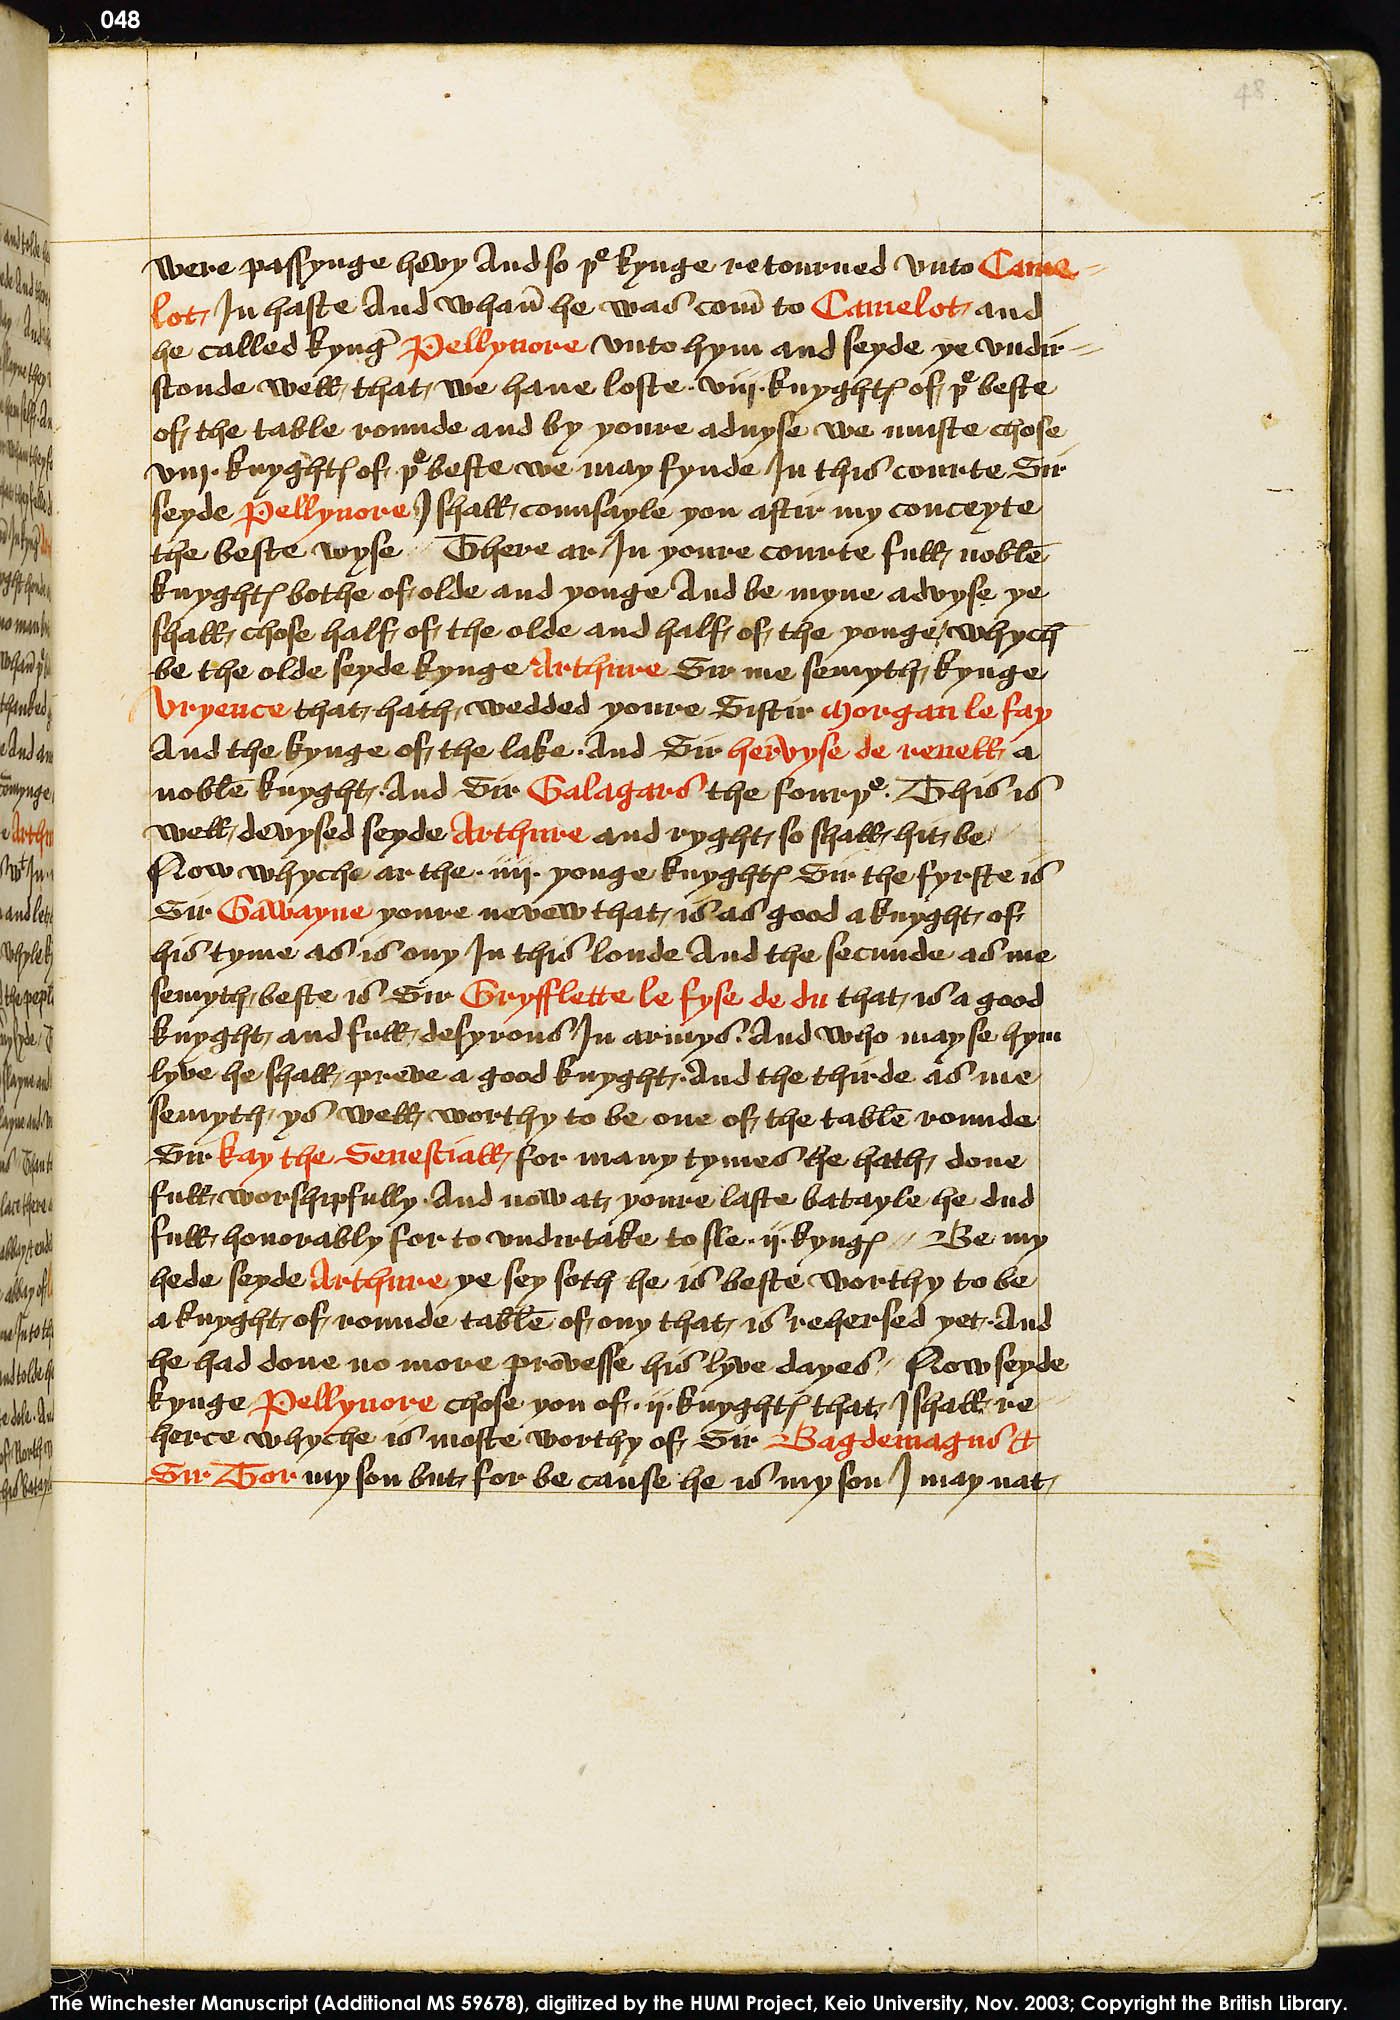 048
48
were passynge hevy And so þe kynge retourned vnto Came
lot In haste And whan̄ he was com̄ to Camelot and
he called kyng Pellynore vnto hym and seyde ye vndir
stonde well that we haue loste .viij. knyghtes of þe beste
of the table rounde and by youre aduyse we muste chose
viij. knyghtes of þe beste we may fynde In this courte Sir
seyde Pellynore I shall counsayle you aftir my conceyte
the beste wyse There ar In youre courte full noble
knyghtes bothe of olde and yonge And be myne advyse ye
shall chose half of the olde and half of the yonge whych
be the olde seyde kynge Arthure Sir me semyth kynge
Vryence that hath wedded youre Sistir Morgan le fay
And the kynge of the lake. And Sir hervyse de revell a
noble knyght. And Sir Galagars the fourþe. This is
well devysed seyde Arthure and ryght so shall hit be
Now whyche ar the .iiij. yonge knyghtes Sir the fyrste is
Sir Gawayne youre nevew that is as good a knyght of
his tyme as is ony In this londe And the secunde as me
semyth beste is Sir Gryfflette le fyse de du that is a good
knyght and full desyrous In armys. And who may se hym
lyve he shall preve a good knyght. And the thirde as me
semyth ys well worthy to be one of the table rounde
Sir kay the Senesciall for many tymes he hath done
full worshipfully And now at youre laste batayle he dud
full honorably for to vndirtake to sle .ij. kynges Be my
hede seyde Arthure ye sey soth he is beste worthy to be
a knyght of rounde table of ony that is rehersed yet. And
he had done no more provesse his lyve dayes Now seyde
kynge Pellynore chose you of .ij. knyghtes that I shall re
herce whyche is moste worthy of Sir Bagdemagus &
Sir Tor my son but for be cause he is my son I may nat
The Winchester Manuscript (Additional MS 59678), digitized by the HUMI Project, Keio University, Nov. 2003; Copyright the British Library.